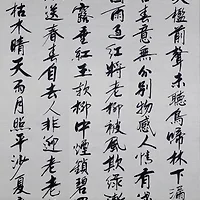 笑檻前聲未聽鳥啼林下
意無分別物感人情有
因雨過紅將老柳被風欺綠漸
露垂紅玉軟柳中煙鎖碧
送春自去人非迎老老
枯木晴天雨月照平沙夏